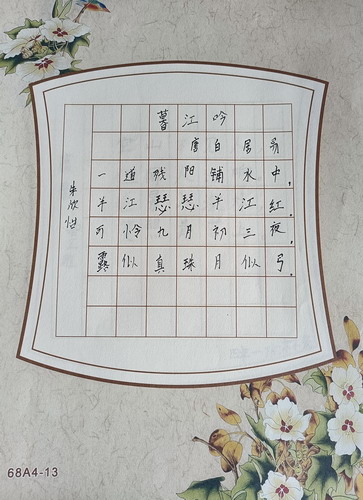 暮江吟
唐白居易
一道残阳铺水中，
半江瑟瑟半江红，
可怜九月初三夜，
露似真珠月似弓。
朱欣怡
68A4-13